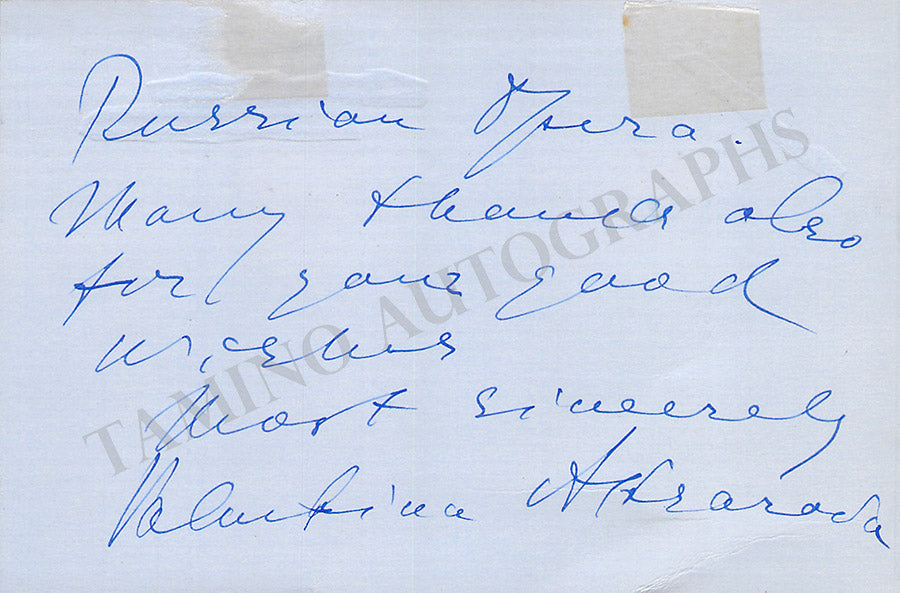 Russian Opera.
Many thanks also
for your good
wishes
Most sincerely
Valentina Aksarova
TAMINO AUTOGRAPHS